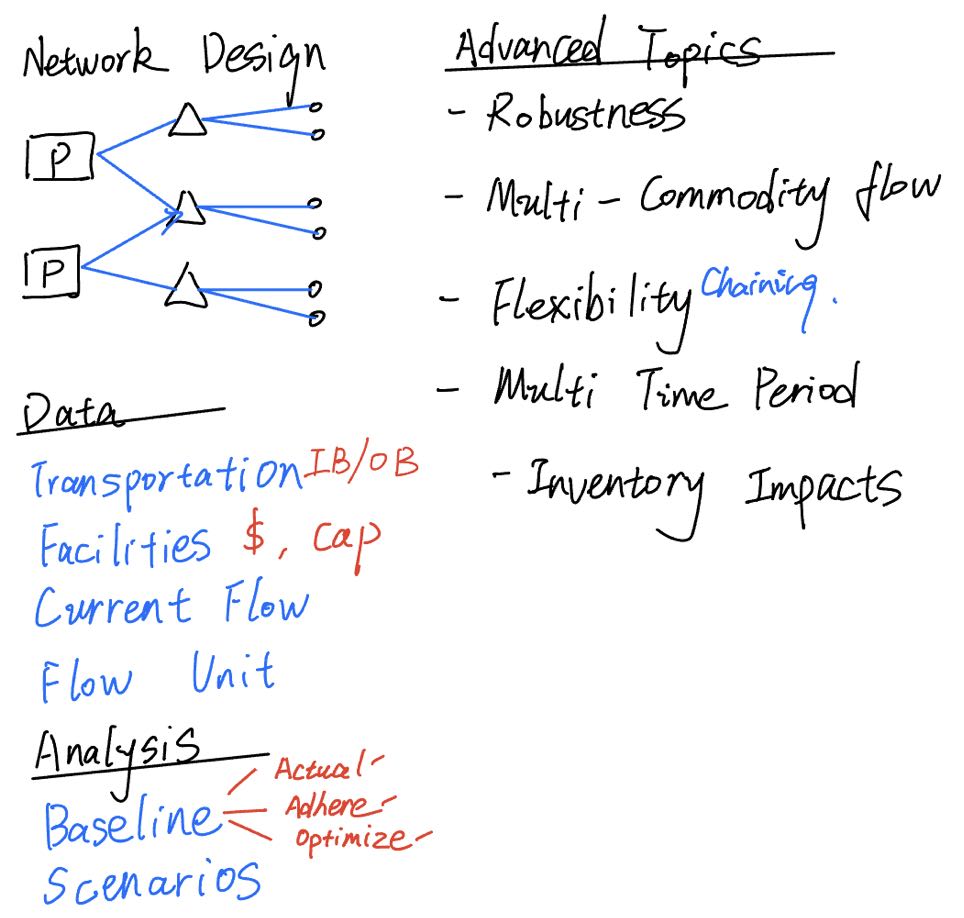 Network Design
P
P
Data
Transportation IB/OB
Facilities $, Cap
Current Flow
Flow Unit
Analysis
Baseline
Actual
Adhere
Optimize
Scenarios
Advanced Topics
- Robustness
- Multi - Commodity flow
- Flexibility Chaining.
- Multi Time Period
- Inventory Impacts